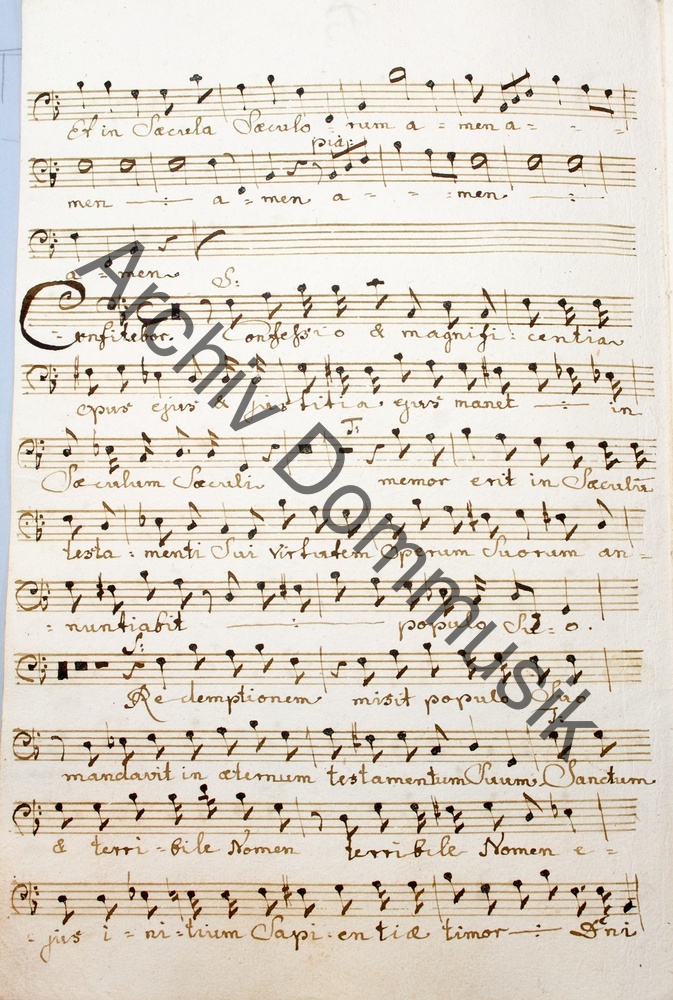 Et in Sæcula Sæculo = rum a = men a = = =
pia:
men —:— a = men a = = = men —:—
a = men
S:
Confitebor. Confessio & magnifi = centia
opus ejus & justitia ejus manet —:— in
T:
Sæculum Sæculi memor erit in Sæculū
testa = menti Sui virtutem Operum Suorum an =
= nuntiabit —:— populo Su = o.
S:
Redemptionem misit populo Suo
T:
mandavit in æternum testamentum Suum. Sanctum
& terri = bile Nomen terribile Nomen e =
= jus i = ni = tium Sapi = entiæ timor —:— Dni
Archiv Dommusik